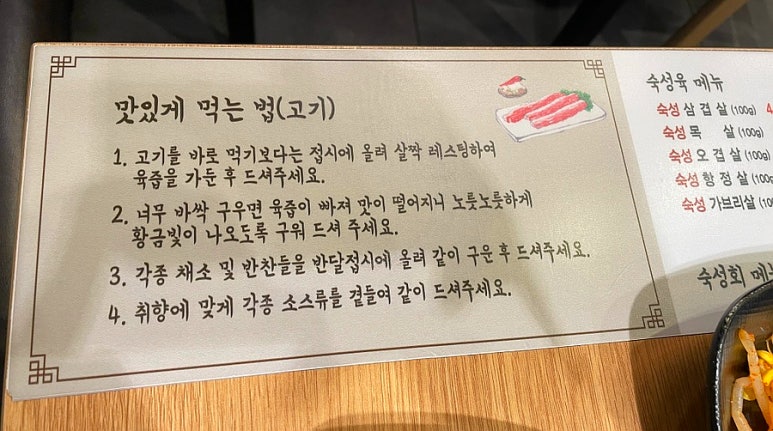 맛있게 먹는 법(고기)
1. 고기를 바로 먹기보다는 접시에 올려 살짝 레스팅하여
육즙을 가둔 후 드셔주세요.
2. 너무 바싹 구우면 육즙이 빠져 맛이 떨어지니 노릇노릇하게
황금빛이 나오도록 구워 드셔 주세요.
3. 각종 채소 및 반찬들을 반달접시에 올려 같이 구운 후 드셔주세요.
4. 취향에 맞게 각종 소스류를 곁들여 같이 드셔주세요.
숙성육 메뉴
숙성 삼 겹 살 (100g) 4
숙성 목 살 (100g)
숙성 오 겹 살 (100g)
숙성 항 정 살 (100g
숙성 가브리살 (100
숙성회 메뉴